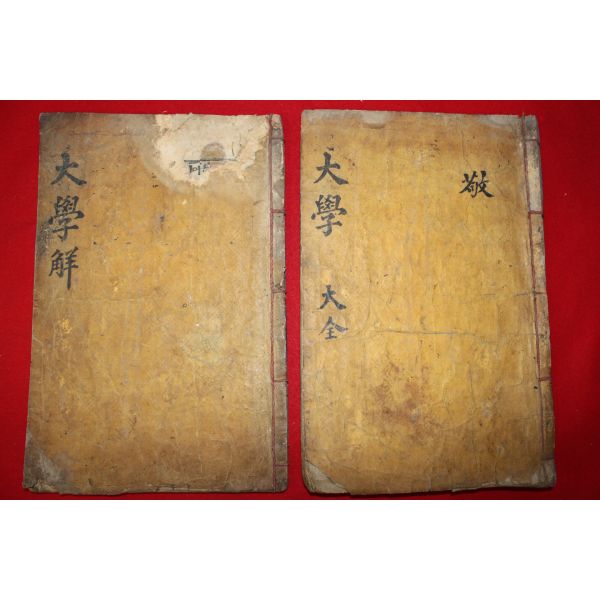 大學解
大學 大全
敬